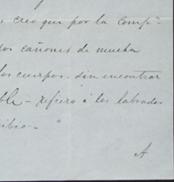 creo que por la Comp-
ros cañones de mucha
los cuerpos, sin encontrar
ble - refiero á los labrados
ibio - "
A